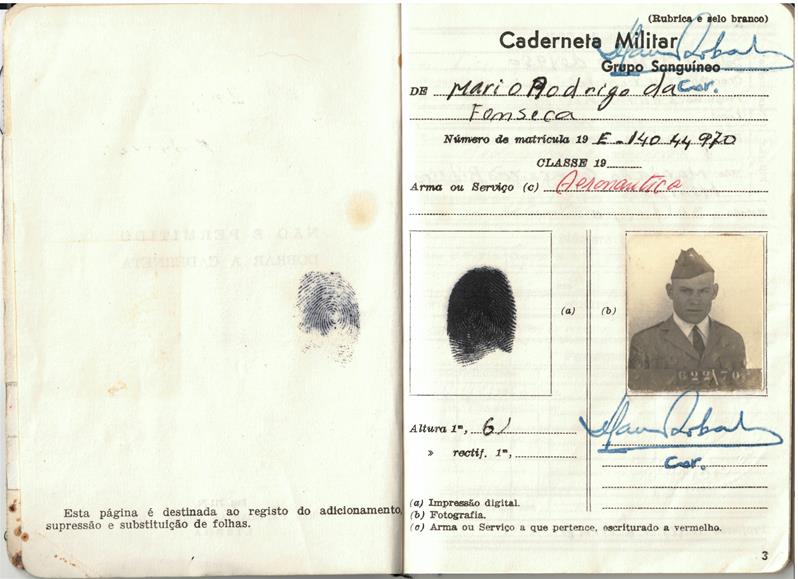 Esta página é destinada ao registo do adicionamento,
supressão e substituição de folhas.
(Rubrica e selo branco)
Caderneta Militar
Grupo Sanguíneo
Cor.
DE Mario Rodrigo da
Fonseca
Número de matrícula 19 E-140 44 970
CLASSE 19
Arma ou Serviço (c) Aeronautica
(a)
(b)
622/70
Altura 1ᵐ, 61
» rectif. 1ᵐ,
Cor.
(a) Impressão digital.
(b) Fotografia.
(c) Arma ou Serviço a que pertence, escriturado a vermelho.
3